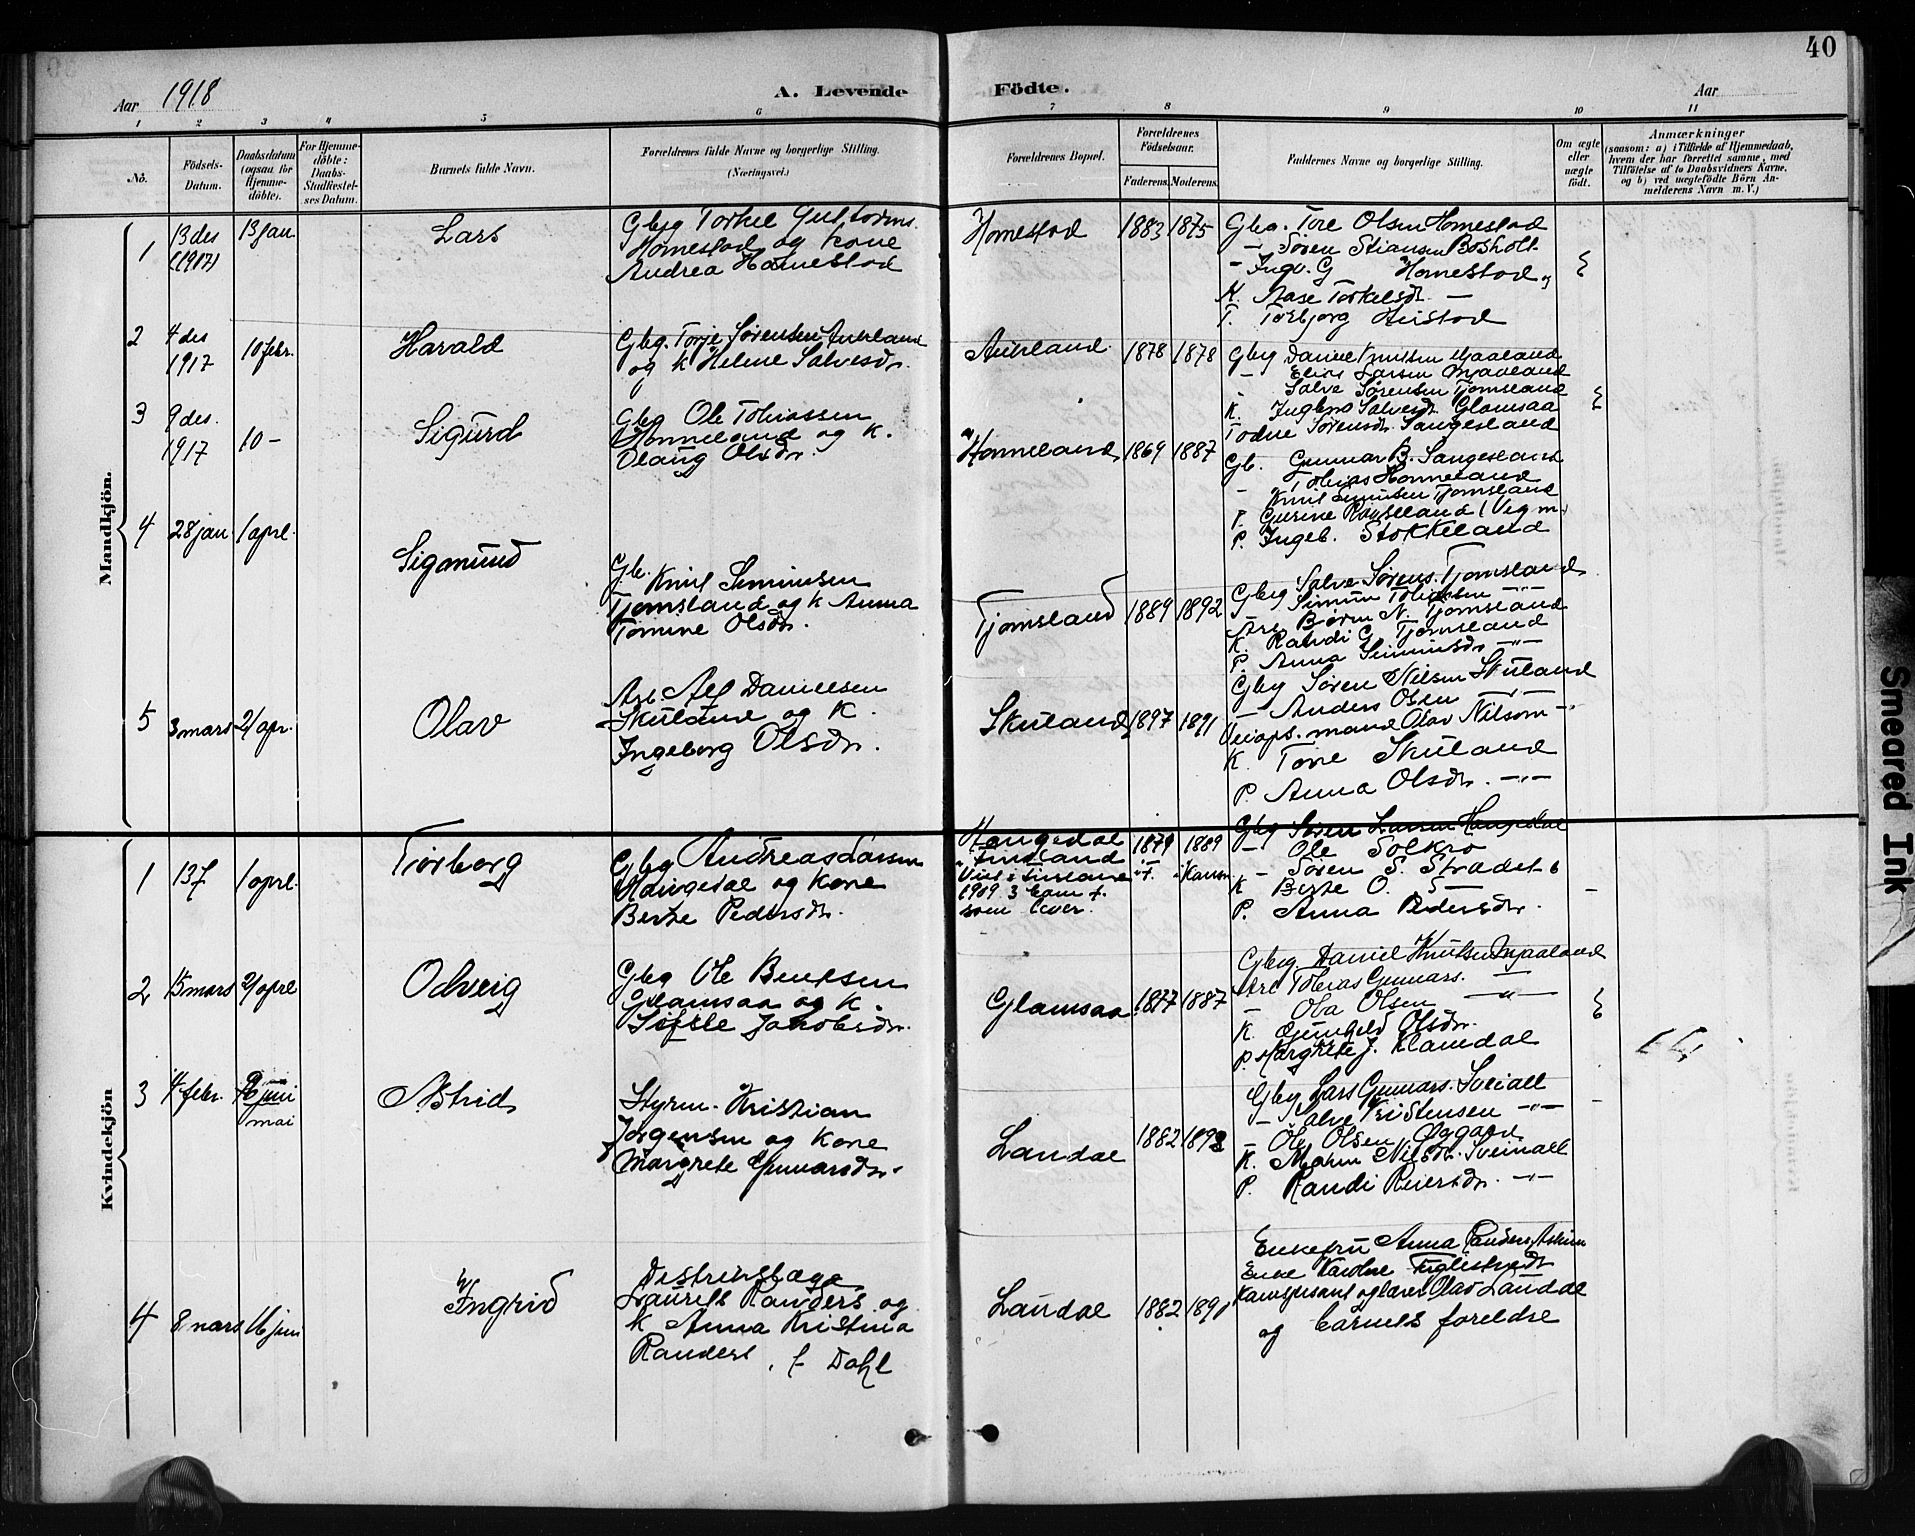 40
Aar 1918
A. Levende Födte.
Aar
1 2 3 4 5 6 7 8 9 10 11
No.
Födsels-
Datum.
Daabsdatum
(ogsaa for
Hjemme-
döbte).
For Hjemme-
döbte:
Daabs-
Stadfæstel-
ses Datum.
Barnets fulde Navn.
Forældrenes fulde Navne og borgerlige Stilling.
(Næringsvei.)
Forældrenes Bopæl.
Forældrenes
Födselsaar.
Faderens. Moderens.
Faddernes Navne og borgerlige Stilling.
Om ægte
eller
uægte
födt.
Anmærkninger
(saasom: a) i Tilfælde af Hjemmedaab,
hvem der har forrettet samme, med
Tilföielse af to Daabsvidners Navne,
og b) ved uægtefödte Börn An-
melderens Navn m. V.)
Mandkjön.
1
13 des
(1917)
13 jan
Lars
Gbrg Torkel
Homestad og kone
Andrea Homestad
Homestad
1883 1875
Gbr. Tore Olsen Homestad
- Søren Stiansen Bosholt
- Ingv. G Homestad
K. Aase Torkelsdr. -
T. Torbjorg
2
4 des
1917
10 febr.
Harald
Gbrg. Torje Sørensen Aukland
og k Helene Salvesdr.
Aukland
1878 1878
Gbrg Daniel Knutsen Mjaaland
- Elias Larsen Mjaaland
- Salve Sørensen Tjomsland
K. Salvesdr. Glamsaa
Todne Sørensdr. Sangesland
3
9 des.
1917
10 -
Sigurd
Gbrg Ole Tobiassen
Honneland og k.
Olaug Olsdr.
Honneland
1869 1887
Gb. Gunnar B. Sangesland
- Tobias Honneland
- Knut Simunsen Tjomsland
P. Gurine
P. Ingeb. Stokkeland
4
28 jan
1 apr.
Sigmund
Gb. Knut Simunsen
Tjomsland og k Anna
Tomine Olsdr.
Tjomsland
1889 1892
Gbrg Salve Sørens. Tjomsland
- Simun Tobiassen -"-
Arb Bjørn N. Tjomsland
K. Randi G. Tjomsland
P. Anna Simunsdr -"-
5
3 mars
21 apr.
Olav
Arb. Alf Danielsen
Skuland og K.
Ingeborg Olsdr.
Skuland
1897 1891
Gbrg Søren Nilsen Skuland
- Anders Olsen -"-
Veiops.mand Olav Nilsen -"-
K. Tone Skuland
P. Anna Olsdr. -"-
Kvindekjön
1
13/
1 apr.
Torborg
Gbrg Andreas Larsen
Haugedal og kone
Berte Pedersdr.
Haugedal
i Finsland
Viet i Finsland
1909. 3 barn +
som lever.
1879 1889
Gbrg Søren Larsen Haugedal
- Ole Solkro
- Søren S.
K Berte O. -
P. Anna Pedersdr.
2
15 mars
21 apr.
Odveig
Gbrg Ole Bentsen
Glamsaa og K.
Sofie Jakobsdr.
Glamsaa
1877 1887
Gbrg Daniel Knutsen Mjaaland
Arb Tobias Gunnars. -
- Ola Olsen -"-
K. Gunhild Olsdr.
P. Margrete J. Klamdal
3
4 febr.
juni
mai
Astrid
Styrm. Kristian
Jørgensen og kone
Margrete Gunnarsdr.
Laudal
1882 1892
Gbrg Lars Gunnars. Sveiall
- Salve Kristensen -"-
- Ole Olsen Øygard
K. Nilsdr. Sveinall
P. Randi Reiersdr. -"-
4
8 mars
16 juni
Ingrid
Distriktslæge
Laurits Randers og
k Anna Kristina
Randers, f. Dahl
Laudal
1882 1891
Enkefru Anna Randers, Askim
Enke Karoline Fuglestvedt
Kandidat og lærer Olav Laudal
og barnets foreldre
Smeared Ink